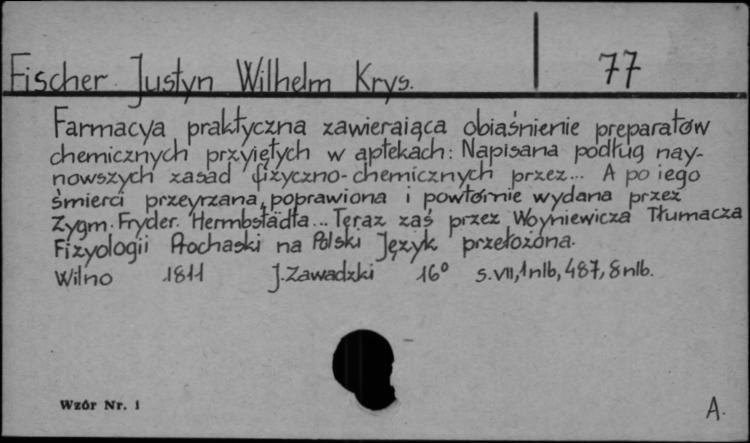 Fischer Justyn Wilhelm Krys. 77
Farmacya praktyczna zawieraiąca obiaśnienie preparatów
chemicznych przyiętych w aptekach: Napisana podług nay-
nowszych zasad fizyczno-chemicznych przez... A po iego
śmierci przeyrzana, poprawiona i powtórnie wydana przez
Zygm. Fryder. Hermbstädta... Teraz zaś przez Woyniewicza Tłumacza
Fizyologii Prochaski na Polski Język przełożona.
Wilno 1811 J. Zawadzki 16° s. VII, 1 nlb, 487, 8 nlb.
Wzór Nr. 1 A.